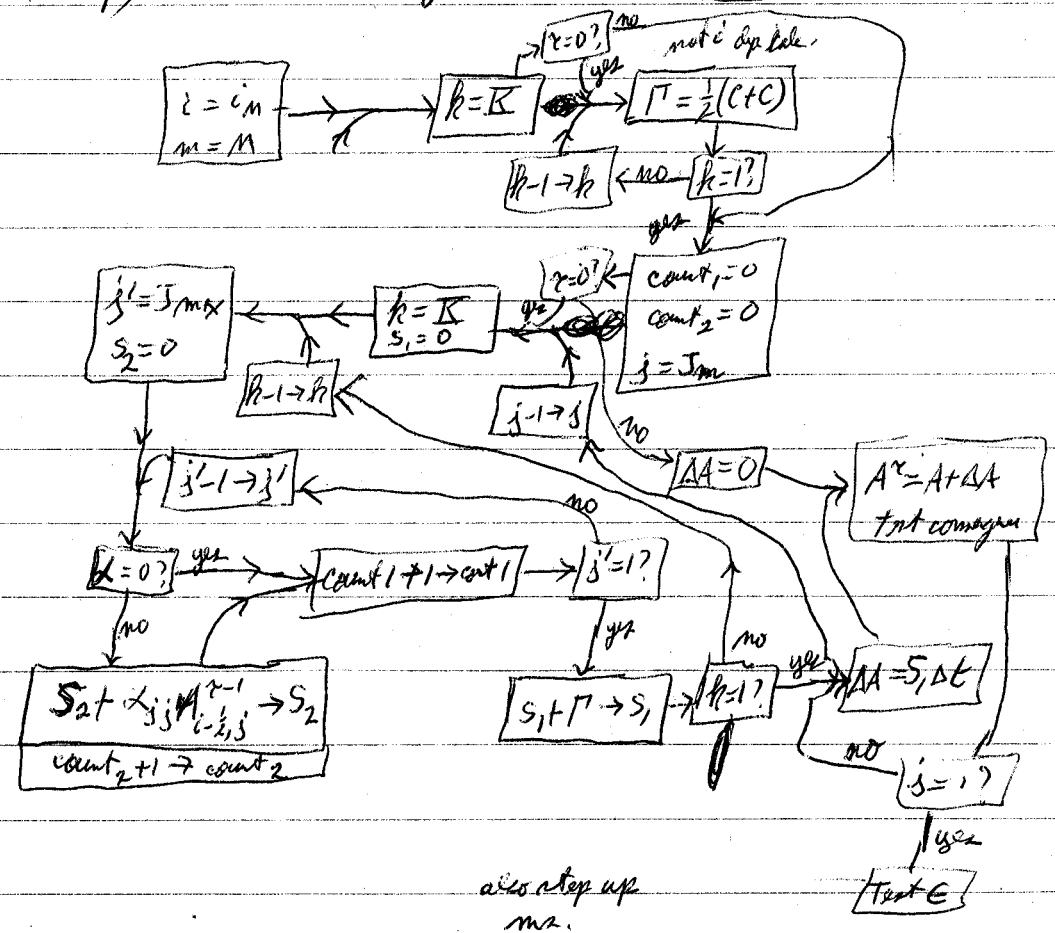 τ=0? no
yes
i = i_M
m = M
k = K
Γ = ½(C+C)
k-1→k
no
k=1?
yes
count₁=0
count₂=0
j = J_m
τ=0?
yes
k = K
s₁=0
j' = J_max
S₂ = 0
k-1→k
j-1→j
no
ΔA=0
A^τ = A+ΔA
j'-1→j'
no
α=0?
yes
count 1 + 1 → cont 1
j'=1?
no
yes
no
yes
S₂ + α_jj' A^{τ-1}_{i-½,j} → S₂
count₂+1 → count₂
s₁+Γ→s₁
k=1?
ΔA = S₁Δt
no
j=1?
yes
Test ∈
also step up